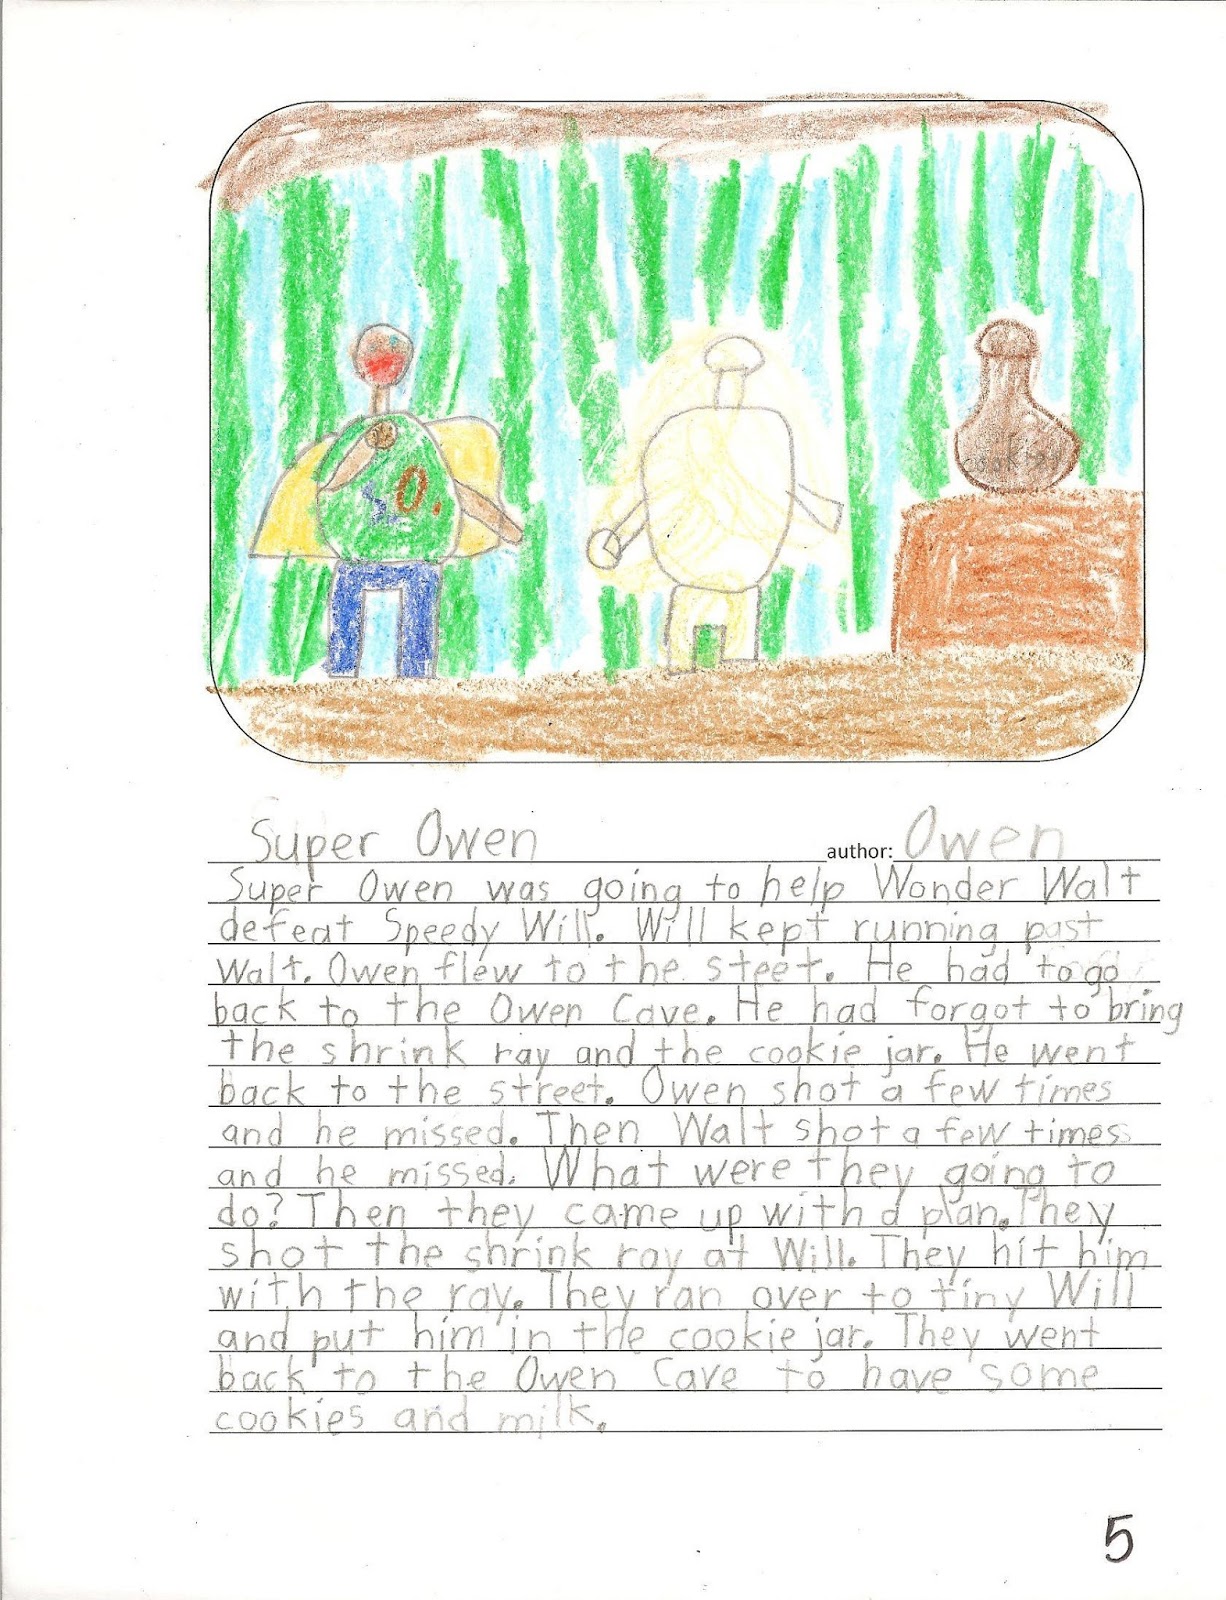 cookies
S O.
Super Owen author: Owen
Super Owen was going to help Wonder Walt
defeat Speedy Will. Will kept running past
Walt. Owen flew to the steet. He had to go
back to the Owen Cave. He had forgot to bring
the shrink ray and the cookie jar. He went
back to the street. Owen shot a few times
and he missed. Then Walt shot a few times
and he missed. What were they going to
do? Then they came up with a plan. They
shot the shrink ray at Will. They hit him
with the ray. They ran over to tiny Will
and put him in the cookie jar. They went
back to the Owen Cave to have some
cookies and milk.
5